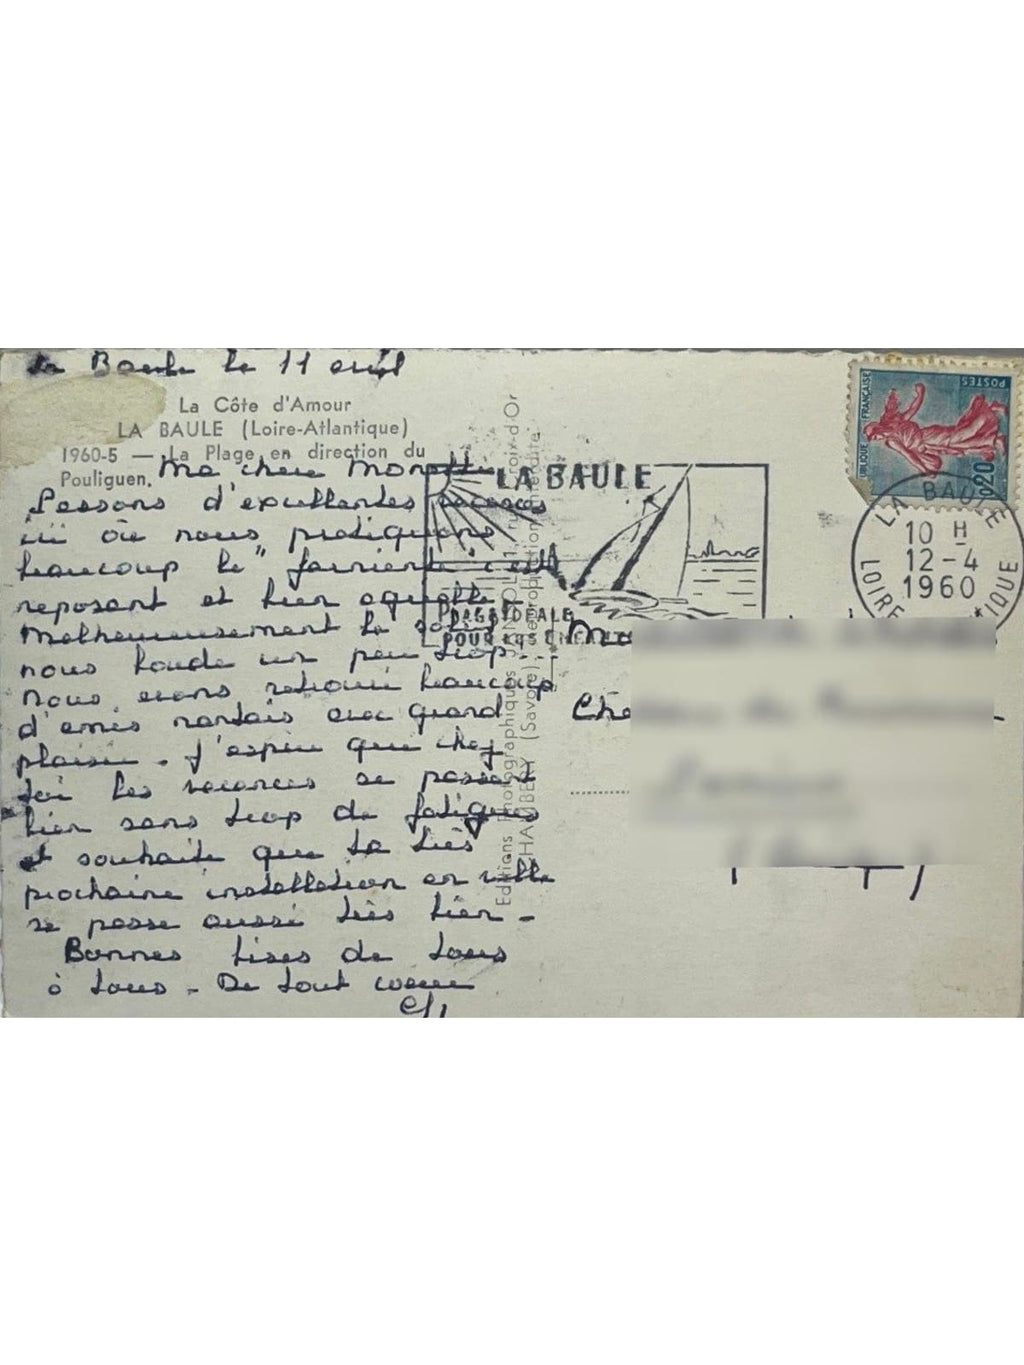 La Baule le 11 avril
La Côte d'Amour
LA BAULE (Loire-Atlantique)
1960-5 — La Plage en direction du
Pouliguen.
Ma chère
Passons d'excellentes vacances
ici où nous pratiquons
beaucoup le "farniente" c'est
reposant et bien agréable
Malheureusement le soleil
nous boude un peu trop.
Nous avons retrouvé beaucoup
d'amis nantais avec grand
plaisir. J'espère que chez
toi les vacances se passent
bien sans trop de fatigues
et souhaite que ta très
prochaine installation en ville
se passe aussi très bien -
Bonnes bises de tous
à tous. De tout coeur
LA BAULE
PLAGE IDÉALE
POUR LES
Editions Photographiques
CHAMBERY (Savoie)
Reproduction interdite
RÉPUBLIQUE FRANÇAISE
POSTES
0,20
LA BAULE
10 H
12-4
1960
LOIRE ATLANTIQUE